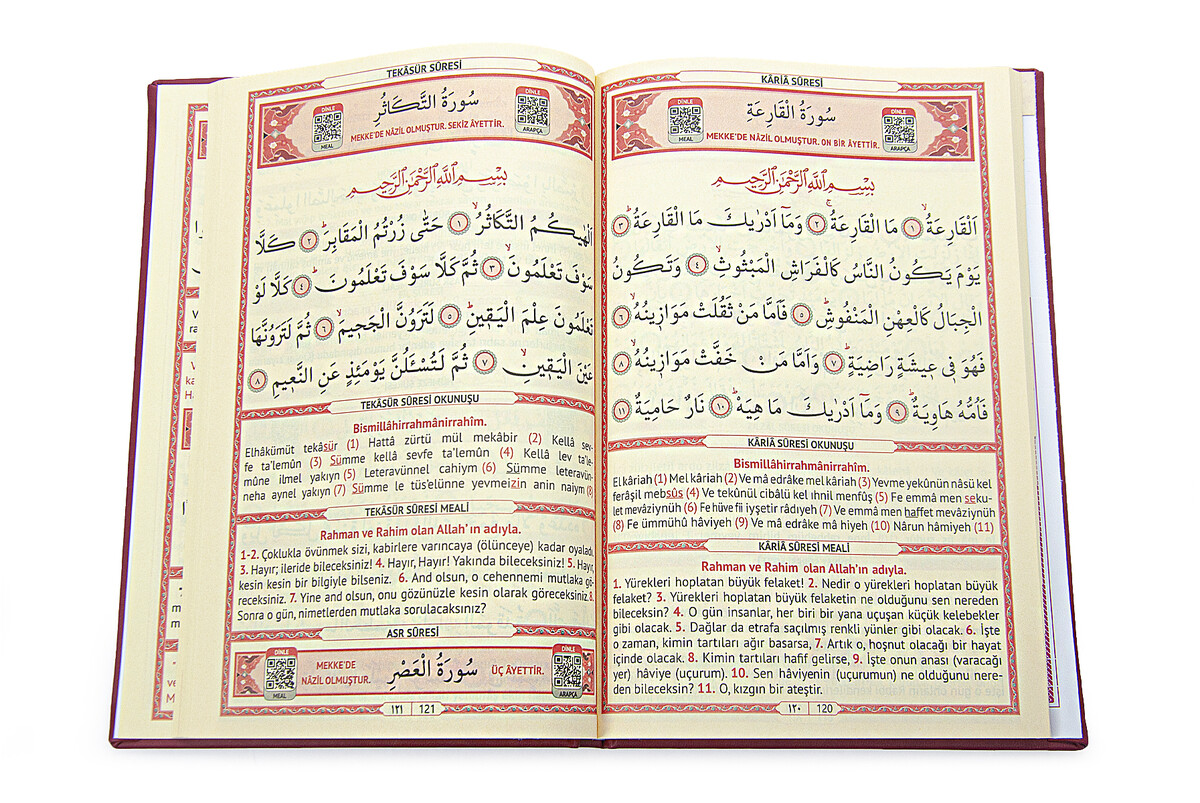 KÂRİÂ SÛRESİ
DİNLE
MEAL
سُورَةُ الْقَارِعَةِ
MEKKE'DE NÂZİL OLMUŞTUR. ON BİR ÂYETTİR.
DİNLE
ARAPÇA
بِسْمِ اللّٰهِ الرَّحْمٰنِ الرَّحِيمِ
اَلْقَارِعَةُۙ ﴿١﴾ مَا الْقَارِعَةُۚ ﴿٢﴾ وَمَٓا اَدْرٰيكَ مَا الْقَارِعَةُۜ ﴿٣﴾
يَوْمَ يَكُونُ النَّاسُ كَالْفَرَاشِ الْمَبْثُوثِۙ ﴿٤﴾ وَتَكُونُ
الْجِبَالُ كَالْعِهْنِ الْمَنْفُوشِۜ ﴿٥﴾ فَاَمَّا مَنْ ثَقُلَتْ مَوَازٖينُهُۙ ﴿٦﴾
فَهُوَ فٖي عٖيشَةٍ رَاضِيَةٍۜ ﴿٧﴾ وَاَمَّا مَنْ خَفَّتْ مَوَازٖينُهُۙ ﴿٨﴾
فَاُمُّهُ هَاوِيَةٌۜ ﴿٩﴾ وَمَٓا اَدْرٰيكَ مَا هِيَهْۜ ﴿١٠﴾ نَارٌ حَامِيَةٌ ﴿١١﴾
KÂRİÂ SÛRESİ OKUNUŞU
Bismillâhirrahmânirrahîm.
El kâriah (1) Mel kâriah (2) Ve mâ edrâke mel kâriah (3) Yevme yekûnün nâsü kel
ferâşil mebsûs (4) Ve tekûnül cibâlü kel ıhnil menfûş (5) Fe emmâ men seku-
let mevâziynüh (6) Fe hüve fii ıyşetir râdıyeh (7) Ve emmâ men haffet mevâziynüh
(8) Fe ümmühû hâviyeh (9) Ve mâ edrâke mâ hiyeh (10) Nârun hâmiyeh (11)
KÂRİÂ SÛRESİ MEALİ
Rahman ve Rahim olan Allah'ın adıyla.
1. Yürekleri hoplatan büyük felaket! 2. Nedir o yürekleri hoplatan büyük
felaket? 3. Yürekleri hoplatan büyük felaketin ne olduğunu sen nereden
bileceksin? 4. O gün insanlar, her biri bir yana uçuşan küçük kelebekler
gibi olacak. 5. Dağlar da etrafa saçılmış renkli yünler gibi olacak. 6. İşte
o zaman, kimin tartıları ağır basarsa, 7. Artık o, hoşnut olacağı bir hayat
içinde olacak. 8. Kimin tartıları hafif gelirse, 9. İşte onun anası (varacağı
yer) hâviye (uçurum). 10. Sen hâviyenin (uçurumun) ne olduğunu nere-
den bileceksin? 11. O, kızgın bir ateştir.
١٢٠ 120
TEKÂSÜR SÛRESİ
DİNLE
MEAL
سُورَةُ التَّكَاثُرِ
MEKKE'DE NÂZİL OLMUŞTUR. SEKİZ ÂYETTİR.
DİNLE
ARAPÇA
بِسْمِ اللّٰهِ الرَّحْمٰنِ الرَّحِيمِ
اَلْهٰيكُمُ التَّكَاثُرُۙ ﴿١﴾ حَتّٰى زُرْتُمُ الْمَقَابِرَۜ ﴿٢﴾ كَلَّا
سَوْفَ تَعْلَمُونَۙ ﴿٣﴾ ثُمَّ كَلَّا سَوْفَ تَعْلَمُونَۜ ﴿٤﴾ كَلَّا لَوْ
تَعْلَمُونَ عِلْمَ الْيَقٖينِۜ ﴿٥﴾ لَتَرَوُنَّ الْجَحٖيمَۙ ﴿٦﴾ ثُمَّ لَتَرَوُنَّهَا
عَيْنَ الْيَقٖينِۙ ﴿٧﴾ ثُمَّ لَتُسْـَٔلُنَّ يَوْمَئِذٍ عَنِ النَّعٖيمِ ﴿٨﴾
TEKÂSÜR SÛRESİ OKUNUŞU
Bismillâhirrahmânirrahîm.
Elhâkümüt tekâsür (1) Hattâ zürtü mül mekâbir (2) Kellâ sev-
fe ta'lemûn (3) Sümme kellâ sevfe ta'lemûn (4) Kellâ lev ta'le-
mûne ilmel yakıyn (5) Leteravünnel cahiym (6) Sümme leteravün-
neha aynel yakıyn (7) Sümme le tüs'elünne yevmeizin anin naiym (8)
TEKÂSÜR SÛRESİ MEALİ
Rahman ve Rahim olan Allah'ın adıyla.
1-2. Çoklukla övünmek sizi, kabirlere varıncaya (ölünceye) kadar oyaladı.
3. Hayır; ileride bileceksiniz! 4. Hayır, Hayır! Yakında bileceksiniz! 5. Hayır,
kesin kesin bir bilgiyle bilseniz. 6. And olsun, o cehennemi mutlaka gö-
receksiniz. 7. Yine and olsun, onu gözünüzle kesin olarak göreceksiniz. 8.
Sonra o gün, nimetlerden mutlaka sorulacaksınız?
ASR SÛRESİ
DİNLE
MEAL
MEKKE'DE
NÂZİL OLMUŞTUR.
سُورَةُ الْعَصْرِ
ÜÇ ÂYETTİR.
DİNLE
ARAPÇA
١٢١ 121